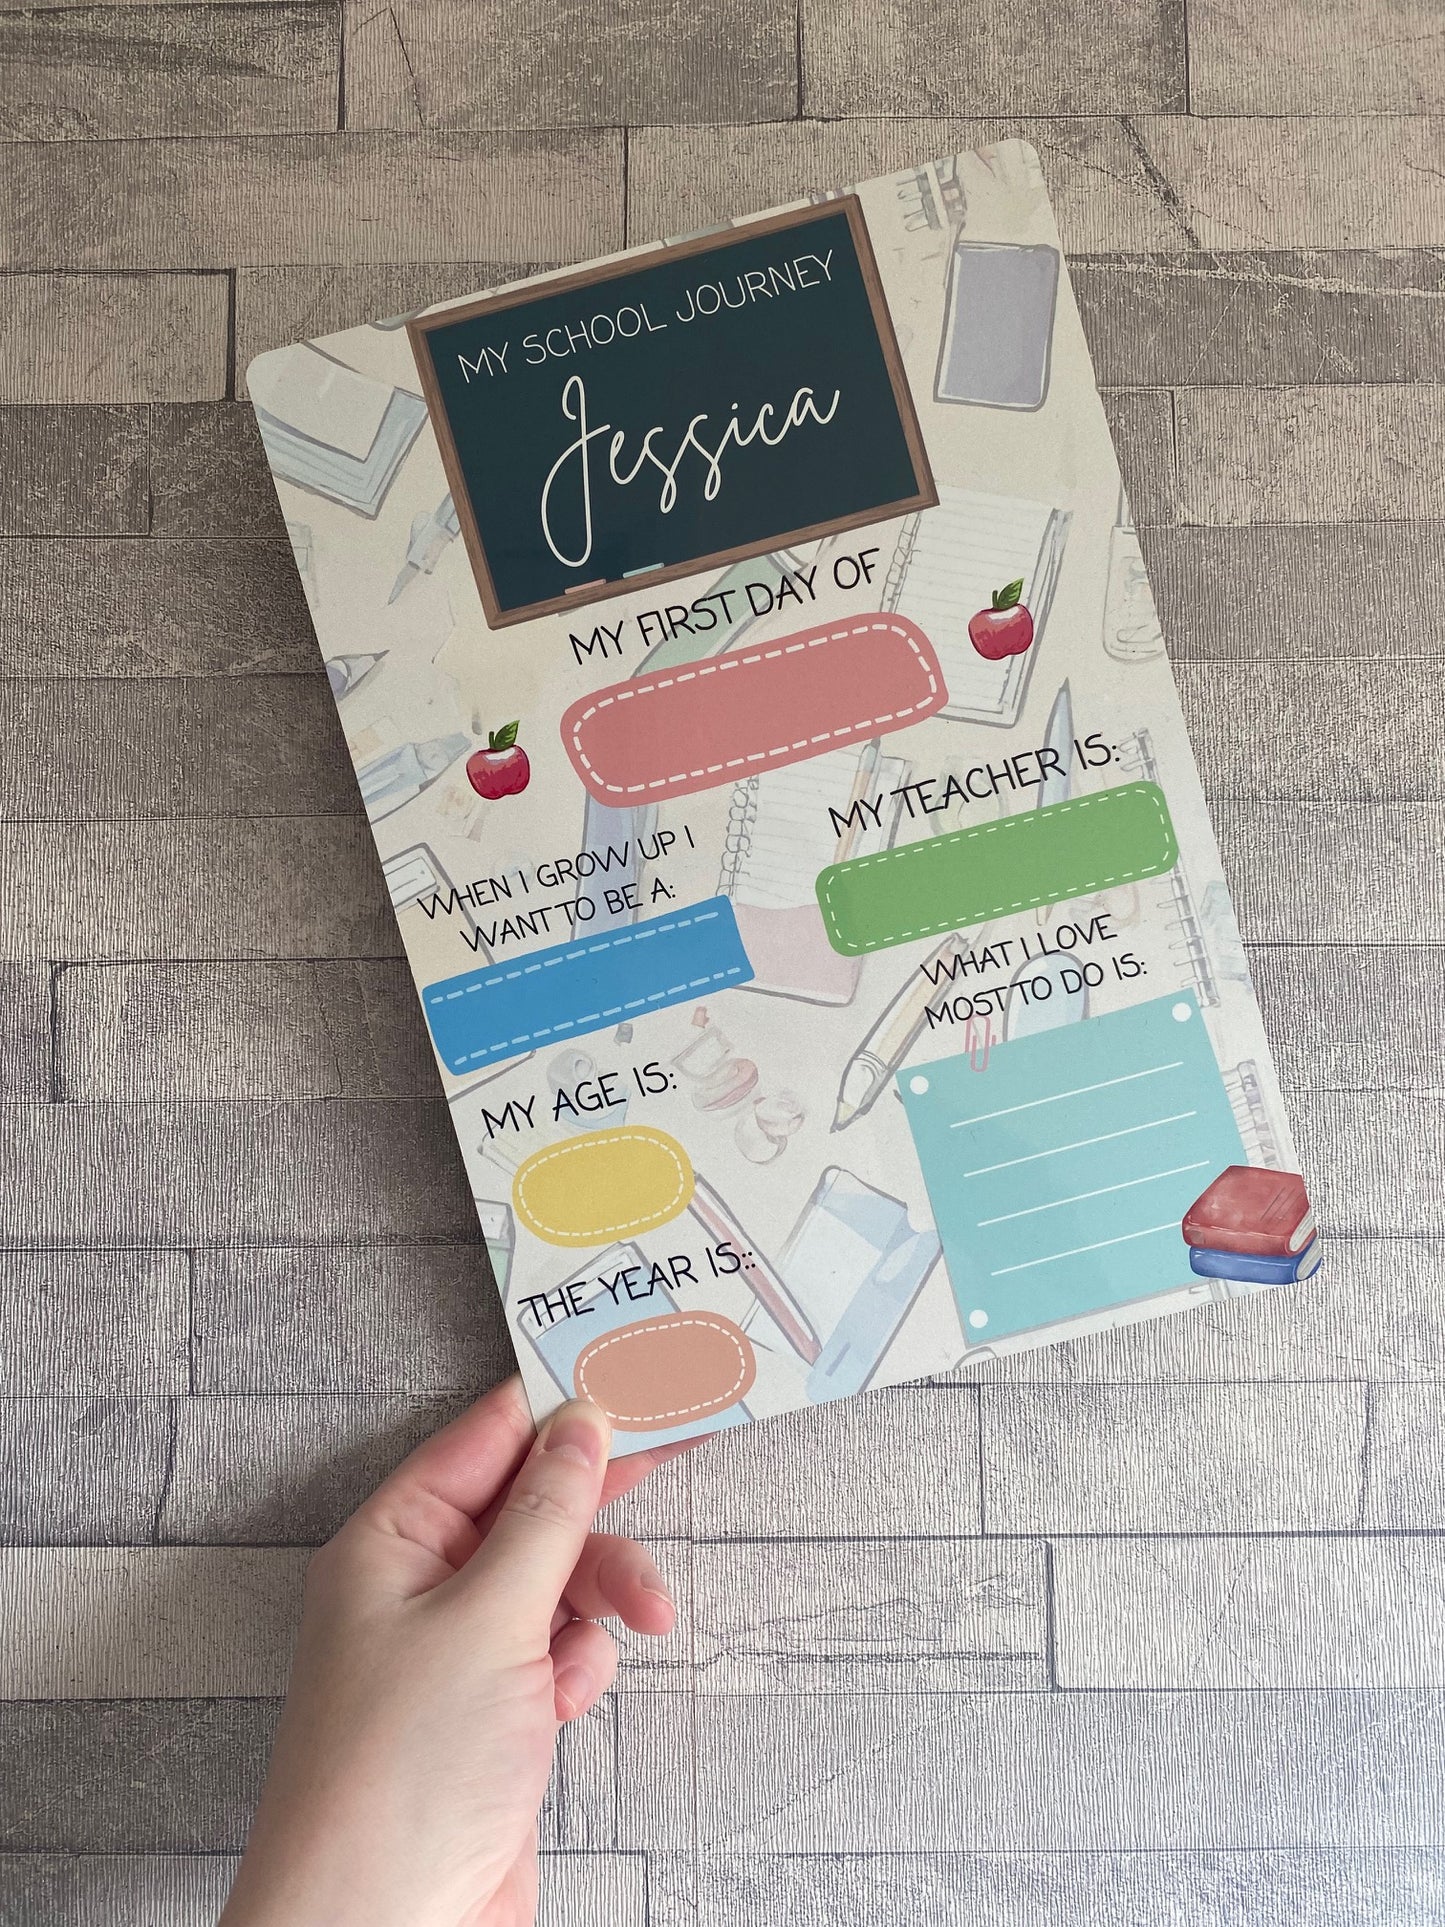 MY SCHOOL JOURNEY
Jessica
MY FIRST DAY OF
MY TEACHER IS:
WHEN I GROW UP I
WANT TO BE A:
WHAT I LOVE
MOST TO DO IS:
MY AGE IS:
THE YEAR IS::